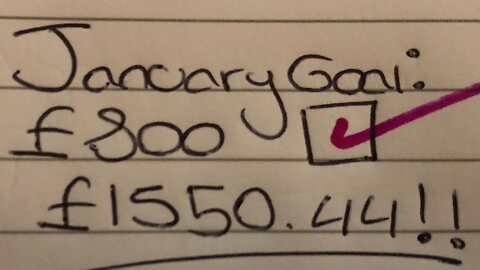 January Goal:
£800
£1550.44!!